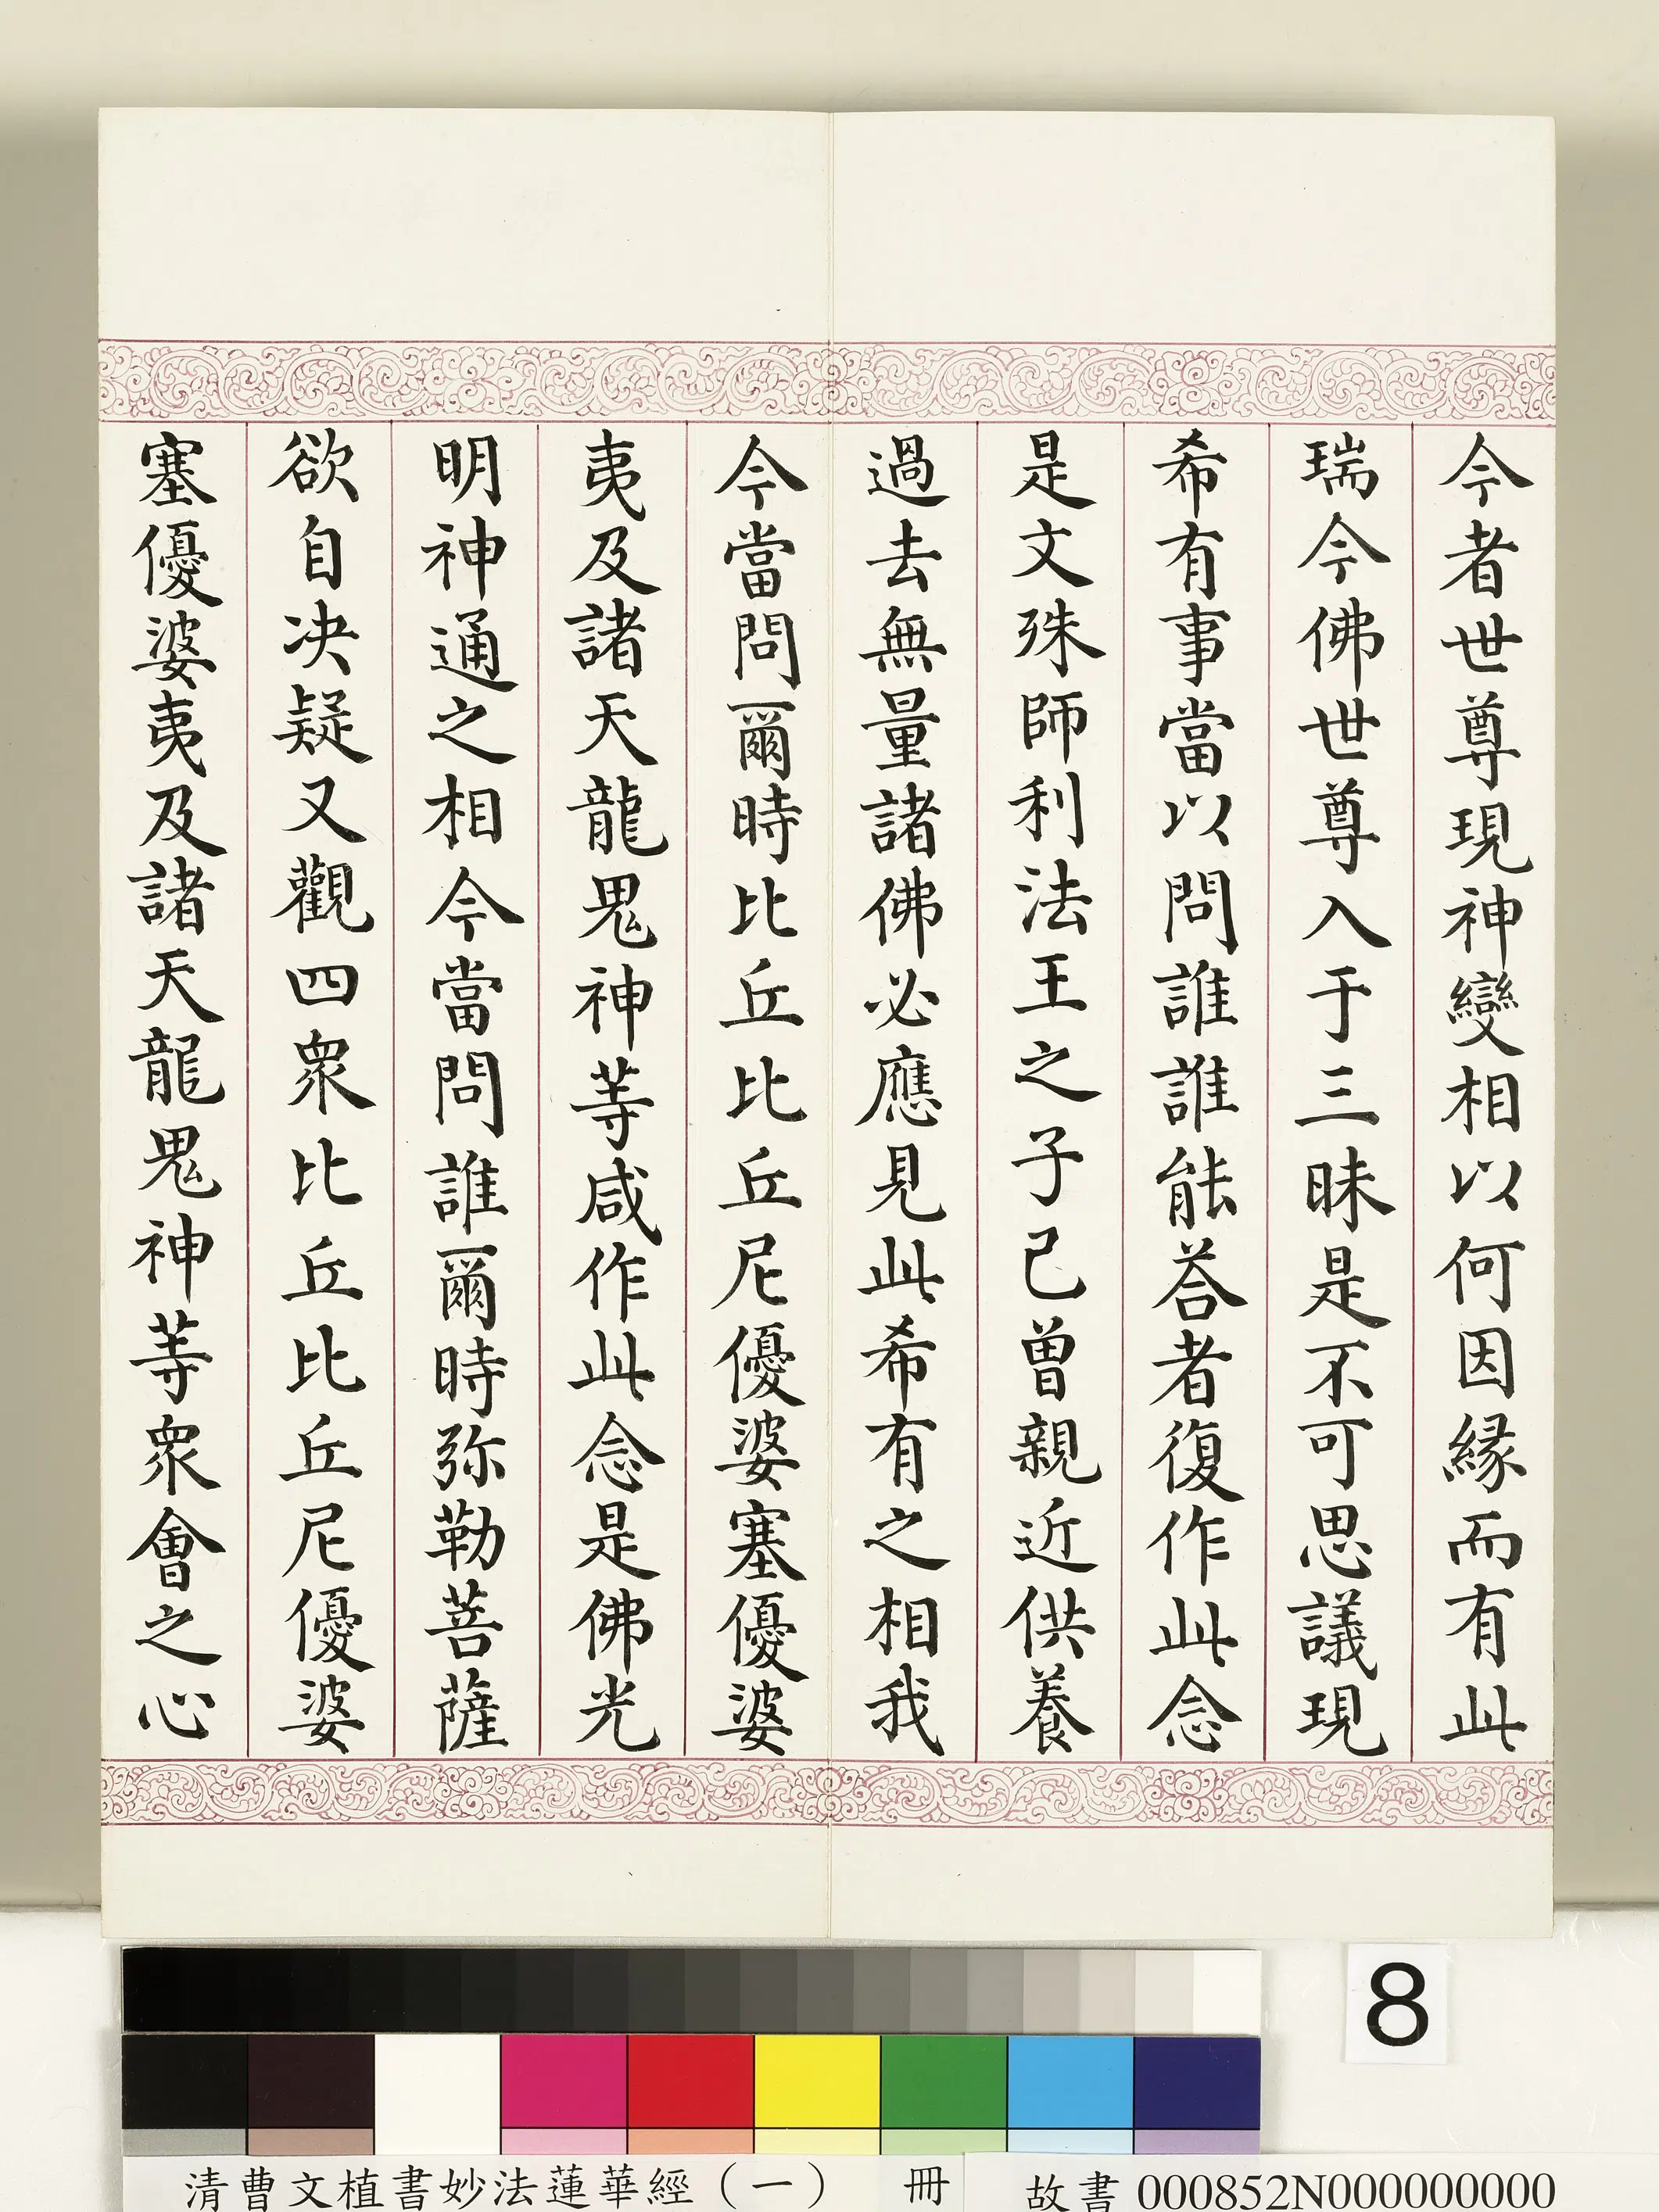 今者世尊現神變相以何因緣而有此
瑞今佛世尊入于三昧是不可思議現
希有事當以問誰誰能荅者復作此念
是文殊師利法王之子已曾親近供養
過去無量諸佛必應見此希有之相我
今當問爾時比丘比丘尼優婆塞優婆
夷及諸天龍鬼神等咸作此念是佛光
明神通之相今當問誰爾時弥勒菩薩
欲自决疑又觀四衆比丘比丘尼優婆
塞優婆夷及諸天龍鬼神等衆會之心
8
清曹文植書妙法蓮華經(一) 冊
故書000852N000000000